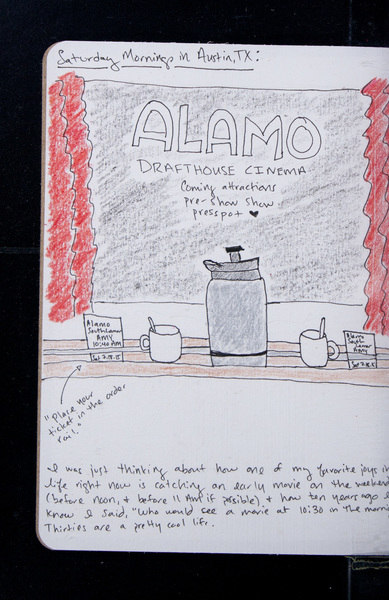 Saturday Mornings in Austin, TX:
ALAMO
DRAFTHOUSE CINEMA
Coming attractions
pre-show show
presspot
Alamo
South Lamar
AMY
10:40 AM
Sat 2.28.15
Alamo
South
Lamar
AMY
"Place your
ticket in the order
rail."
I was just thinking about how one of my favorite joys in
life right now is catching an early movie on the weekend
(before noon, & before 11 AM if possible), & how ten years ago
know I said, "Who would see a movie at 10:30 in the morni
Thirties are a pretty cool life.